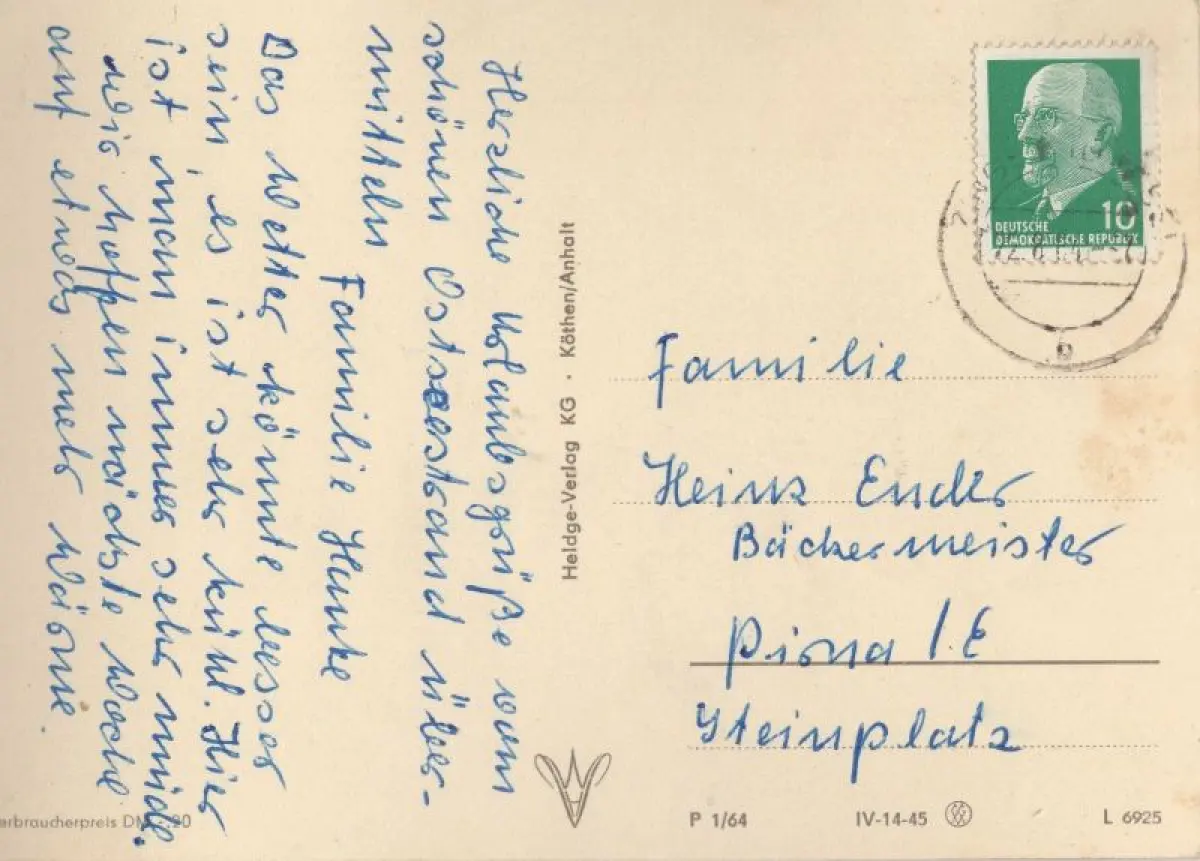 Herzliche Urlaubsgrüße vom
schönen Ostseestrand über-
mitteln
Familie Hanke
Das Wetter könnte besser
sein, es ist sehr kühl. Hier
ist man immer sehr müde.
Wir hoffen nächste Woche
auf etwas mehr Wärme.
Heldge-Verlag KG · Köthen/Anhalt
10
DEUTSCHE
DEMOKRATISCHE REPUBLIK
Familie
Heinz Ender
Bäckermeister
Pirna / E
Steinplatz
erbraucherpreis DM -.20
P 1/64 IV-14-45 L 6925